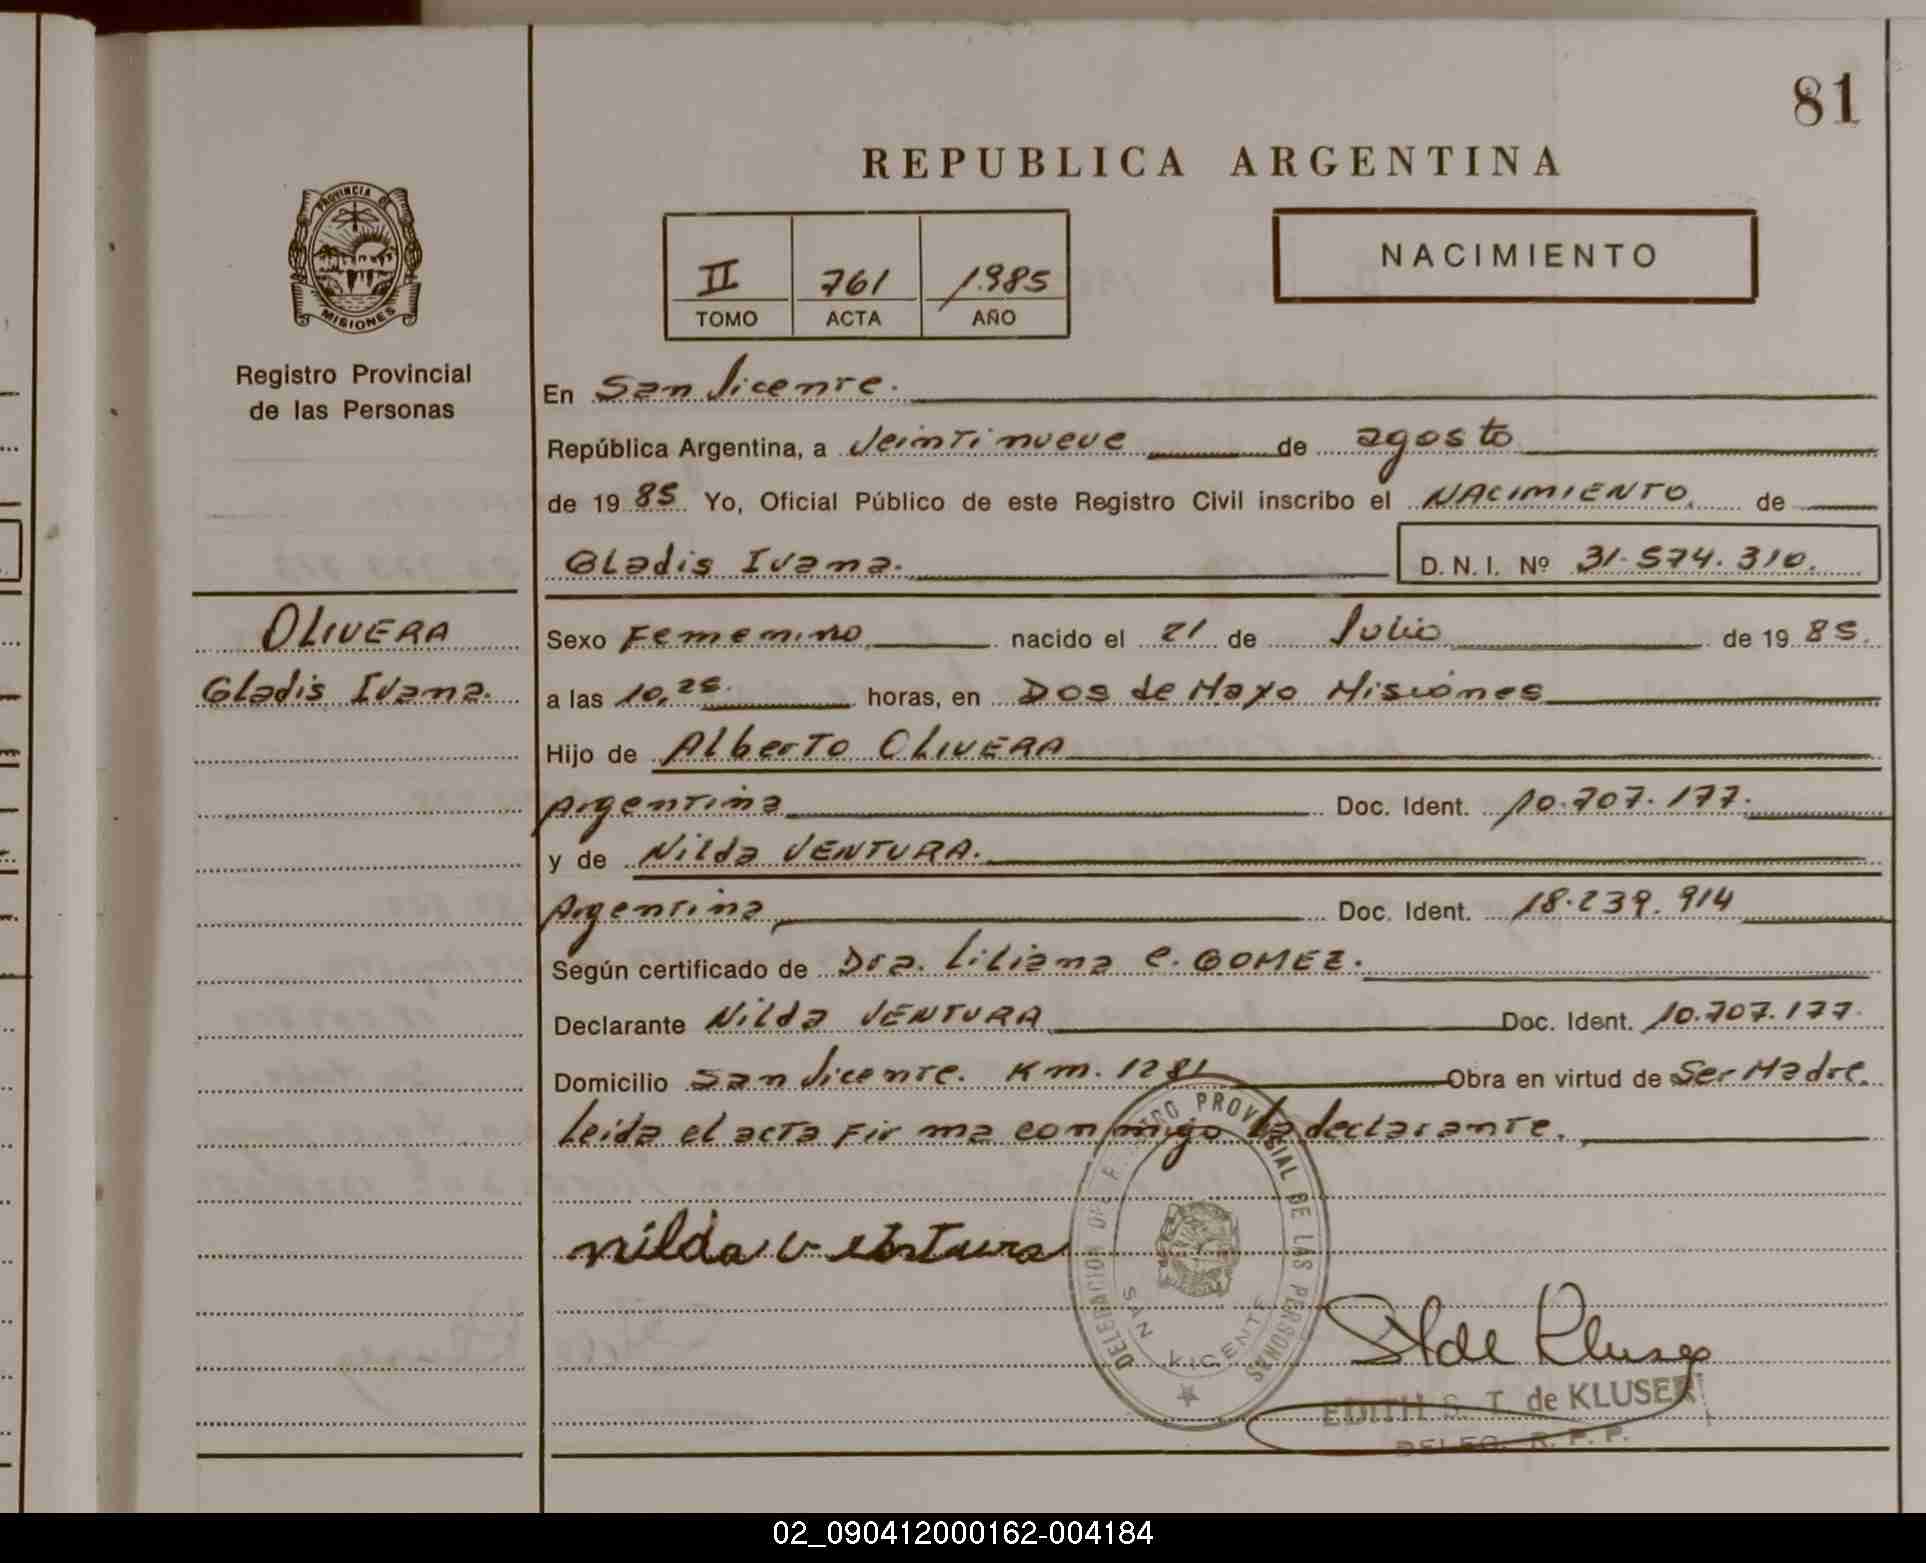 81
REPUBLICA ARGENTINA
PROVINCIA DE
MISIONES
Registro Provincial
de las Personas
II 761 1.985
TOMO ACTA AÑO
NACIMIENTO
En San Vicente.
República Argentina, a Veintinueve de agosto
de 19 85 Yo, Oficial Público de este Registro Civil inscribo el NACIMIENTO de
Gladis Ivana. D. N. I. Nº 31.574.310.
OLIVERA
Gladis Ivana.
Sexo Femenino nacido el 21 de Julio de 19 85.
a las 10,25. horas, en Dos de Mayo Misiones
Hijo de Alberto OLIVERA
Argentina Doc. Ident. 10.707.177.
y de Nilda VENTURA.
Argentina Doc. Ident. 18.239.914
Según certificado de Dra. Liliana C. GOMEZ.
Declarante Nilda VENTURA Doc. Ident. 10.707.177.
Domicilio San Vicente. Km. 1281 Obra en virtud de Ser Madre.
Leida el acta firma conmigo la declarante.
nilda ventura
DELEGACION DEL REGISTRO PROVINCIAL DE LAS PERSONAS
SAN VICENTE
EDITH S. T. de KLUSER
DELEG. R. P. P.
02_090412000162-004184